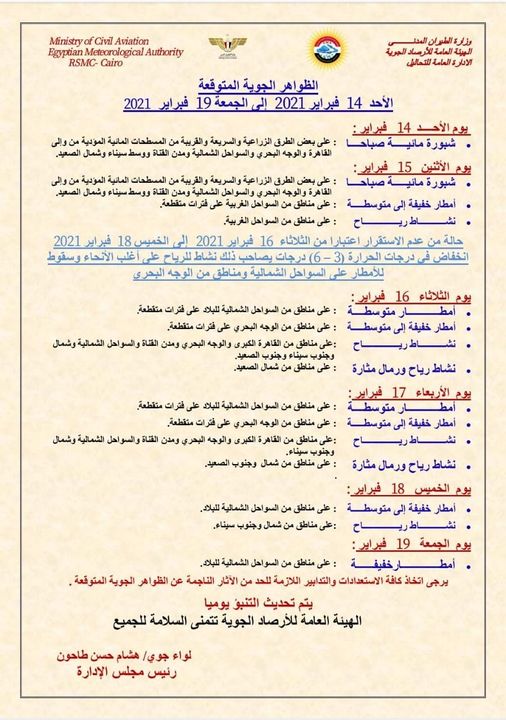 Ministry of Civil Aviation
Egyptian Meteorological Authority
RSMC- Cairo
وزارة الطيران المدنـــي
الهيئة العامة للأرصاد الجوية
الادارة العامة للتحاليل
الظواهر الجوية المتوقعة
الأحد 14 فبراير 2021 إلى الجمعة 19 فبراير 2021
يوم الأحـــد 14 فبراير :
شبورة مائيـــة صباحـــا : على بعض الطرق الزراعية والسريعة والقريبة من المسطحات المائية المؤدية من وإلى
القاهرة والوجه البحري والسواحل الشمالية ومدن القناة ووسط سيناء وشمال الصعيد.
يوم الأثنين 15 فبراير :
شبورة مائيـــة صباحـــا : على بعض الطرق الزراعية والسريعة والقريبة من المسطحات المائية المؤدية من وإلى
القاهرة والوجه البحري والسواحل الشمالية ومدن القناة ووسط سيناء وشمال الصعيد.
أمطار خفيفة إلى متوسطـــة : على مناطق من السواحل الغربية على فترات متقطعة.
نشـــاط ريـــاح : على مناطق من السواحل الغربية.
حالة من عدم الاستقرار اعتبارا من الثلاثاء 16 فبراير 2021 إلى الخميس 18 فبراير 2021
إنخفاض فى درجات الحرارة (3 – 6) درجات يصاحب ذلك نشاط للرياح على أغلب الأنحاء وسقوط
للأمطار على السواحل الشمالية ومناطق من الوجه البحري
يوم الثلاثاء 16 فبراير :
أمطـــار متوسطـــة : على مناطق من السواحل الشمالية للبلاد على فترات متقطعة.
أمطار خفيفة إلى متوسطـــة : على مناطق من الوجه البحري على فترات متقطعة.
نشـــاط ريـــاح : على مناطق من القاهرة الكبرى والوجه البحري ومدن القناة والسواحل الشمالية وشمال
وجنوب سيناء وجنوب الصعيد.
نشاط رياح ورمال مثارة : على مناطق من شمال الصعيد.
يوم الأربعاء 17 فبراير :
أمطـــار متوسطـــة : على مناطق من السواحل الشمالية للبلاد على فترات متقطعة.
أمطار خفيفة إلى متوسطـــة : على مناطق من الوجه البحري على فترات متقطعة.
نشـــاط ريـــاح : على مناطق من القاهرة الكبرى والوجه البحري ومدن القناة والسواحل الشمالية وشمال
وجنوب سيناء.
نشاط رياح ورمال مثارة : على مناطق من شمال وجنوب الصعيد.
.
يوم الخميس 18 فبراير :
أمطار خفيفة إلى متوسطـــة : على مناطق من السواحل الشمالية للبلاد.
نشـــاط ريـــاح : على مناطق من شمال وجنوب سيناء.
يوم الجمعة 19 فبراير :
أمطـــار خفيفـــة : على مناطق من السواحل الشمالية للبلاد.
يرجى اتخاذ كافة الاستعدادات والتدابير اللازمة للحد من الأثار الناجمة عن الظواهر الجوية المتوقعة .
يتم تحديث التنبؤ يوميا
الهيئة العامة للأرصاد الجوية تتمنى السلامة للجميع
لواء جوي/ هشام حسن طاحون
رئيس مجلس الإدارة